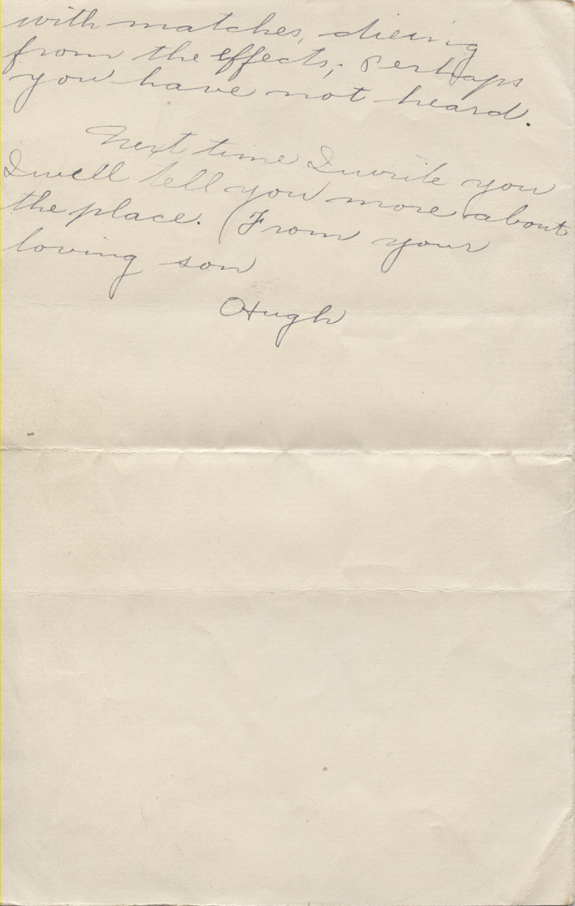 with matches, dieing
from the effects; Perhaps
you have not heard.
Next time I write you
I will tell you more about
the place. (From your
loving son
Hugh